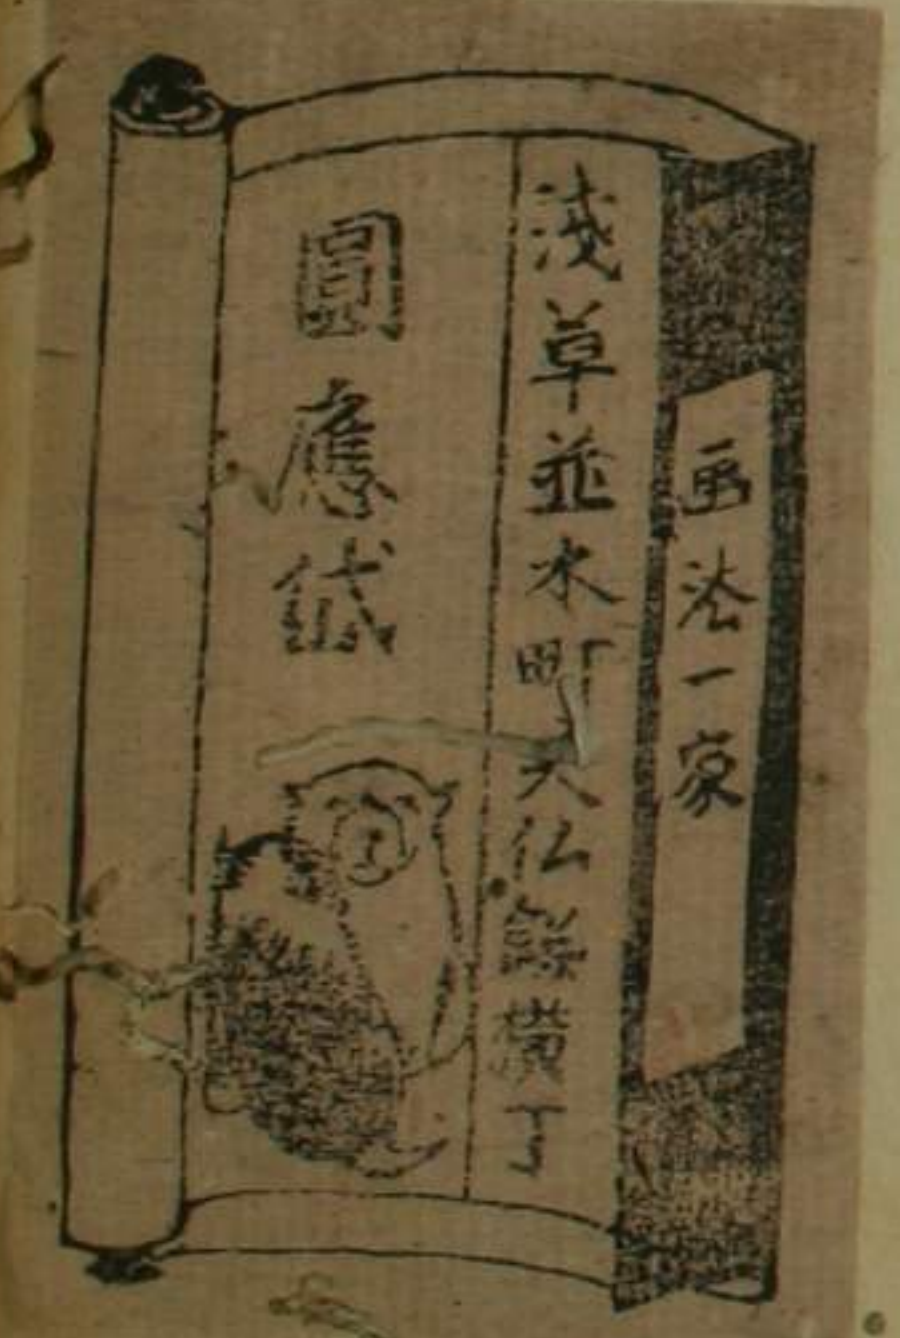 画法一家
淺草並木町大仏餅横丁
圓應岱